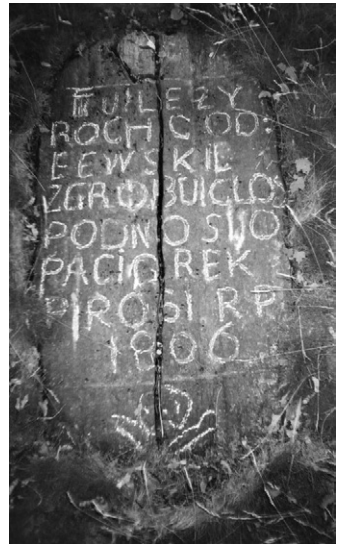 TU LEZY
ROCH GOD:
EEWSKIE
ZGROBU IGLOS
PODNOSI WO
PACIOREK
PROSI RP
1806